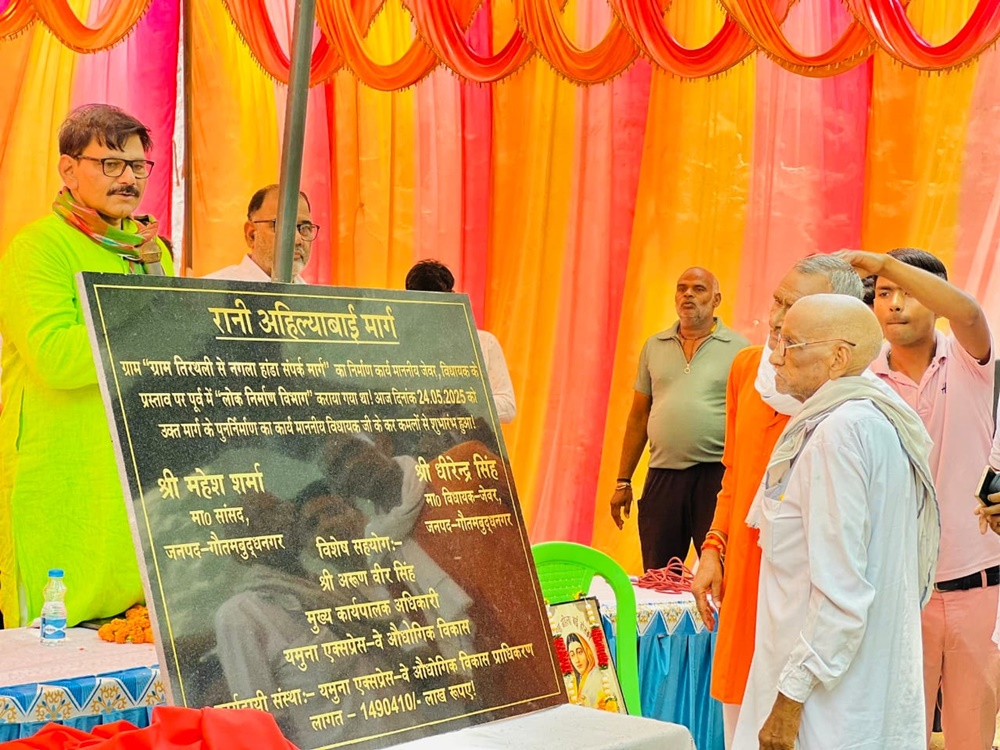 रानी अहिल्याबाई मार्ग
ग्राम “ग्राम तिरथली से नगला हांडा संपर्क मार्ग” का निर्माण कार्य माननीय जेवर, विधायक के
प्रस्ताव पर पूर्व में “लोक निर्माण विभाग” कराया गया था! आज दिनांक 24.05.2025 को
उक्त मार्ग के पुनर्निर्माण का कार्य माननीय विधायक जी के कर कमलों से शुभारंभ हुआ!
श्री महेश शर्मा
मा0 सांसद,
जनपद–गौतमबुद्धनगर
श्री धीरेन्द्र सिंह
मा0 विधायक–जेवर,
जनपद–गौतमबुद्धनगर
विशेष सहयोग:–
श्री अरूण वीर सिंह
मुख्य कार्यपालक अधिकारी
यमुना एक्सप्रेस–वे औधोगिक विकास
संस्था:– यमुना एक्सप्रेस–वे औधोगिक विकास प्राधिकरण
लागत – 1490410/- लाख रूपए!